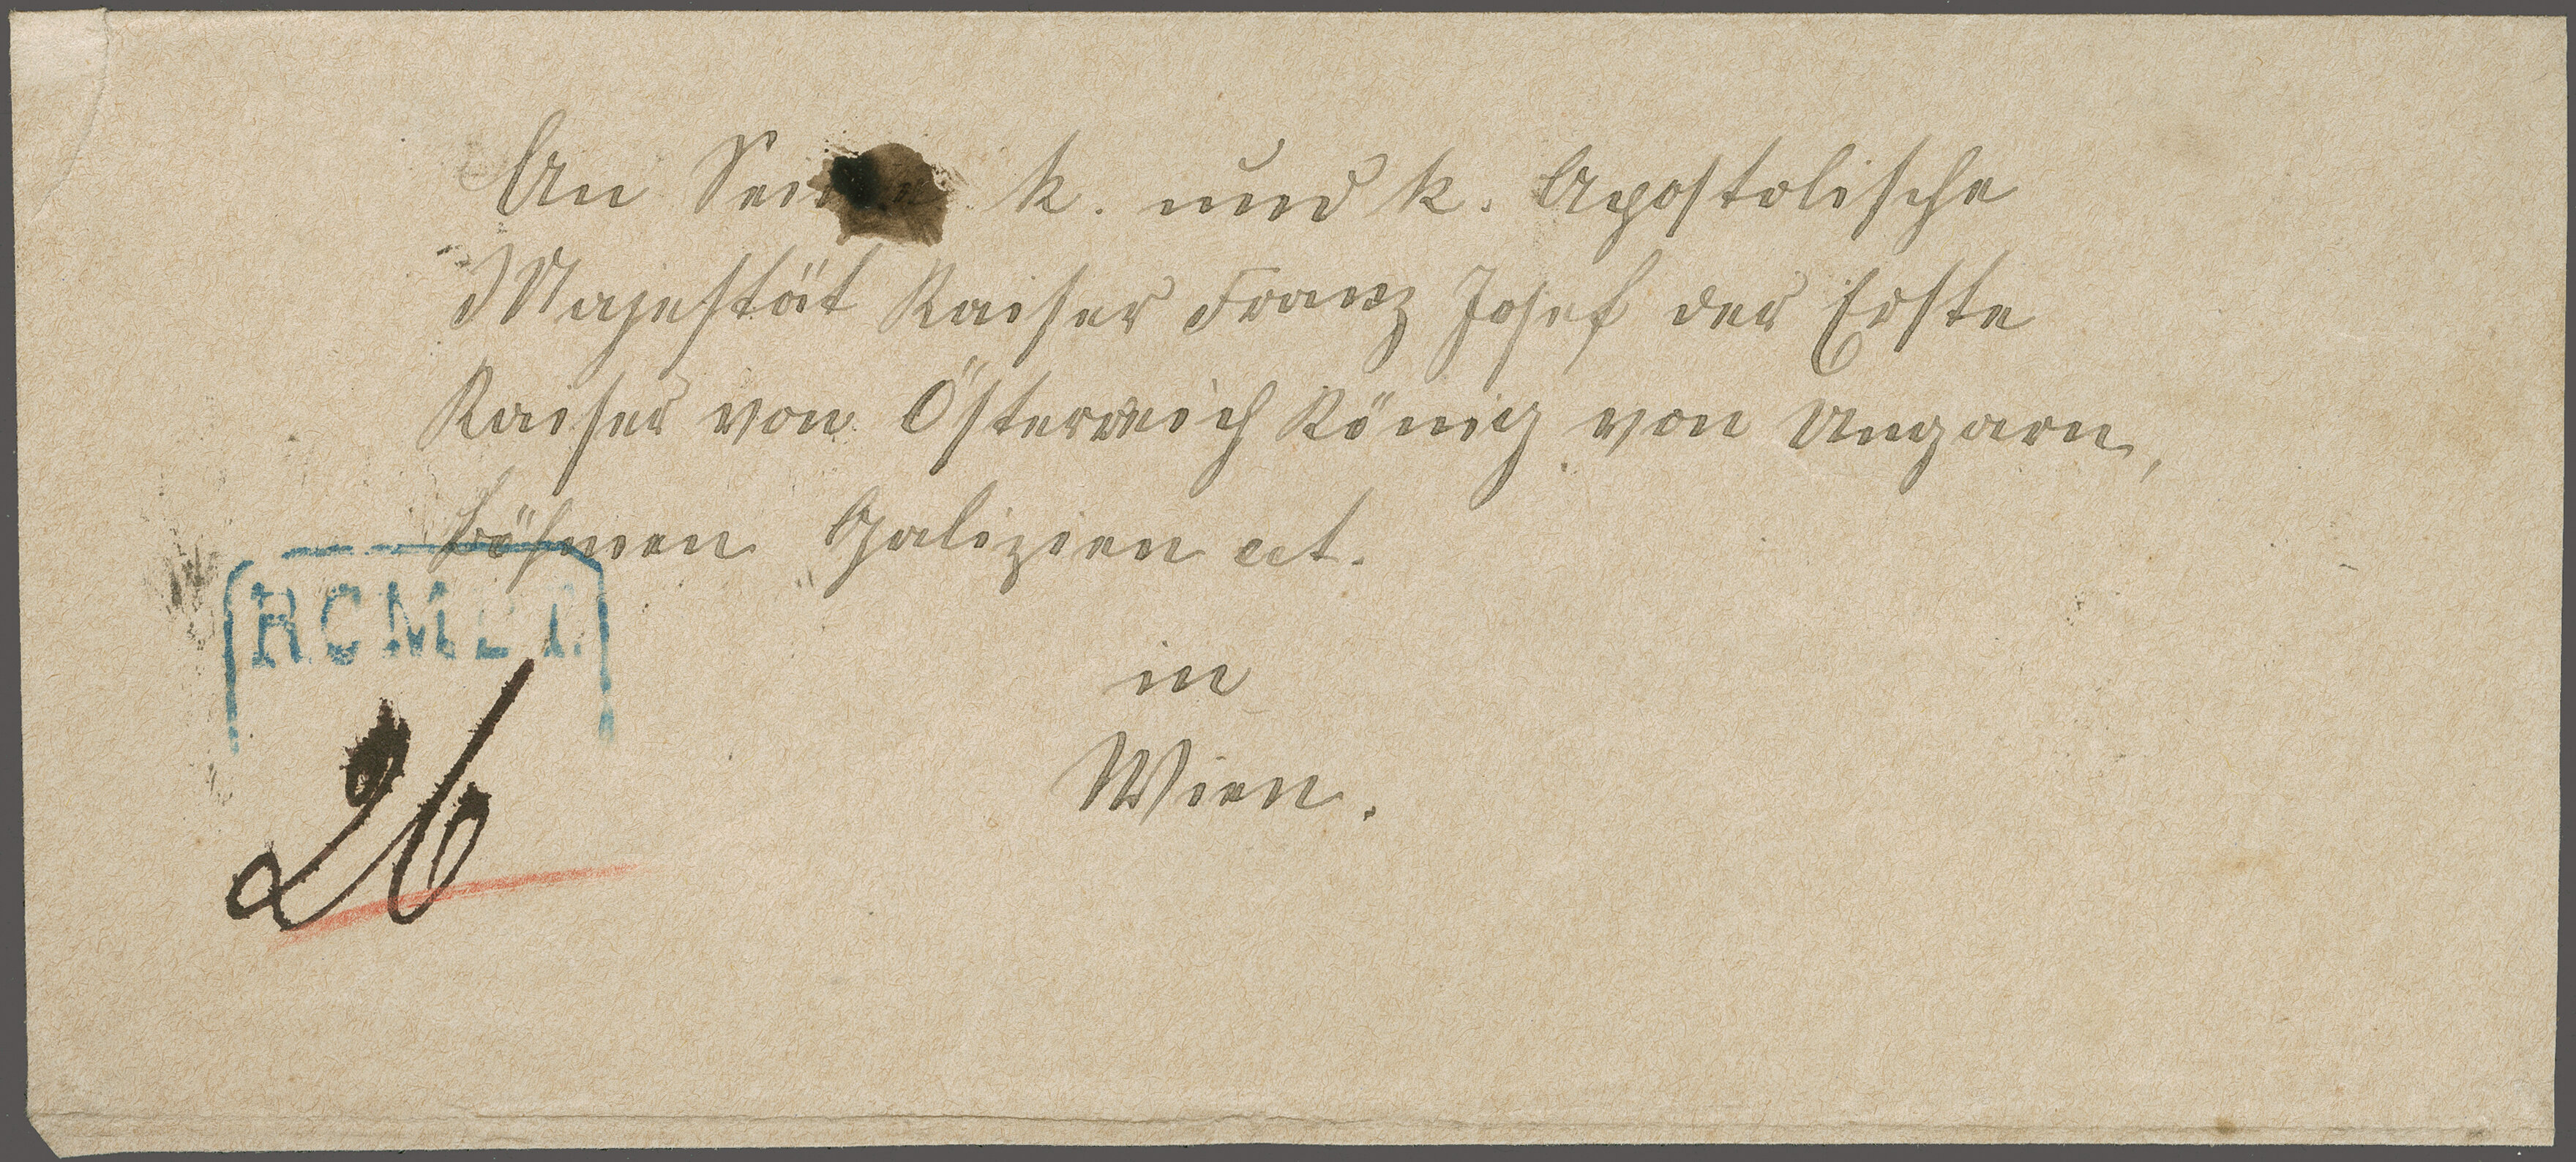 An Seine k. und k. Apostolische
Majestät Kaiser Franz Josef der Erste
Kaiser von Österreich König von Ungarn,
böhmen Galizien ect.
in
Wien.
26